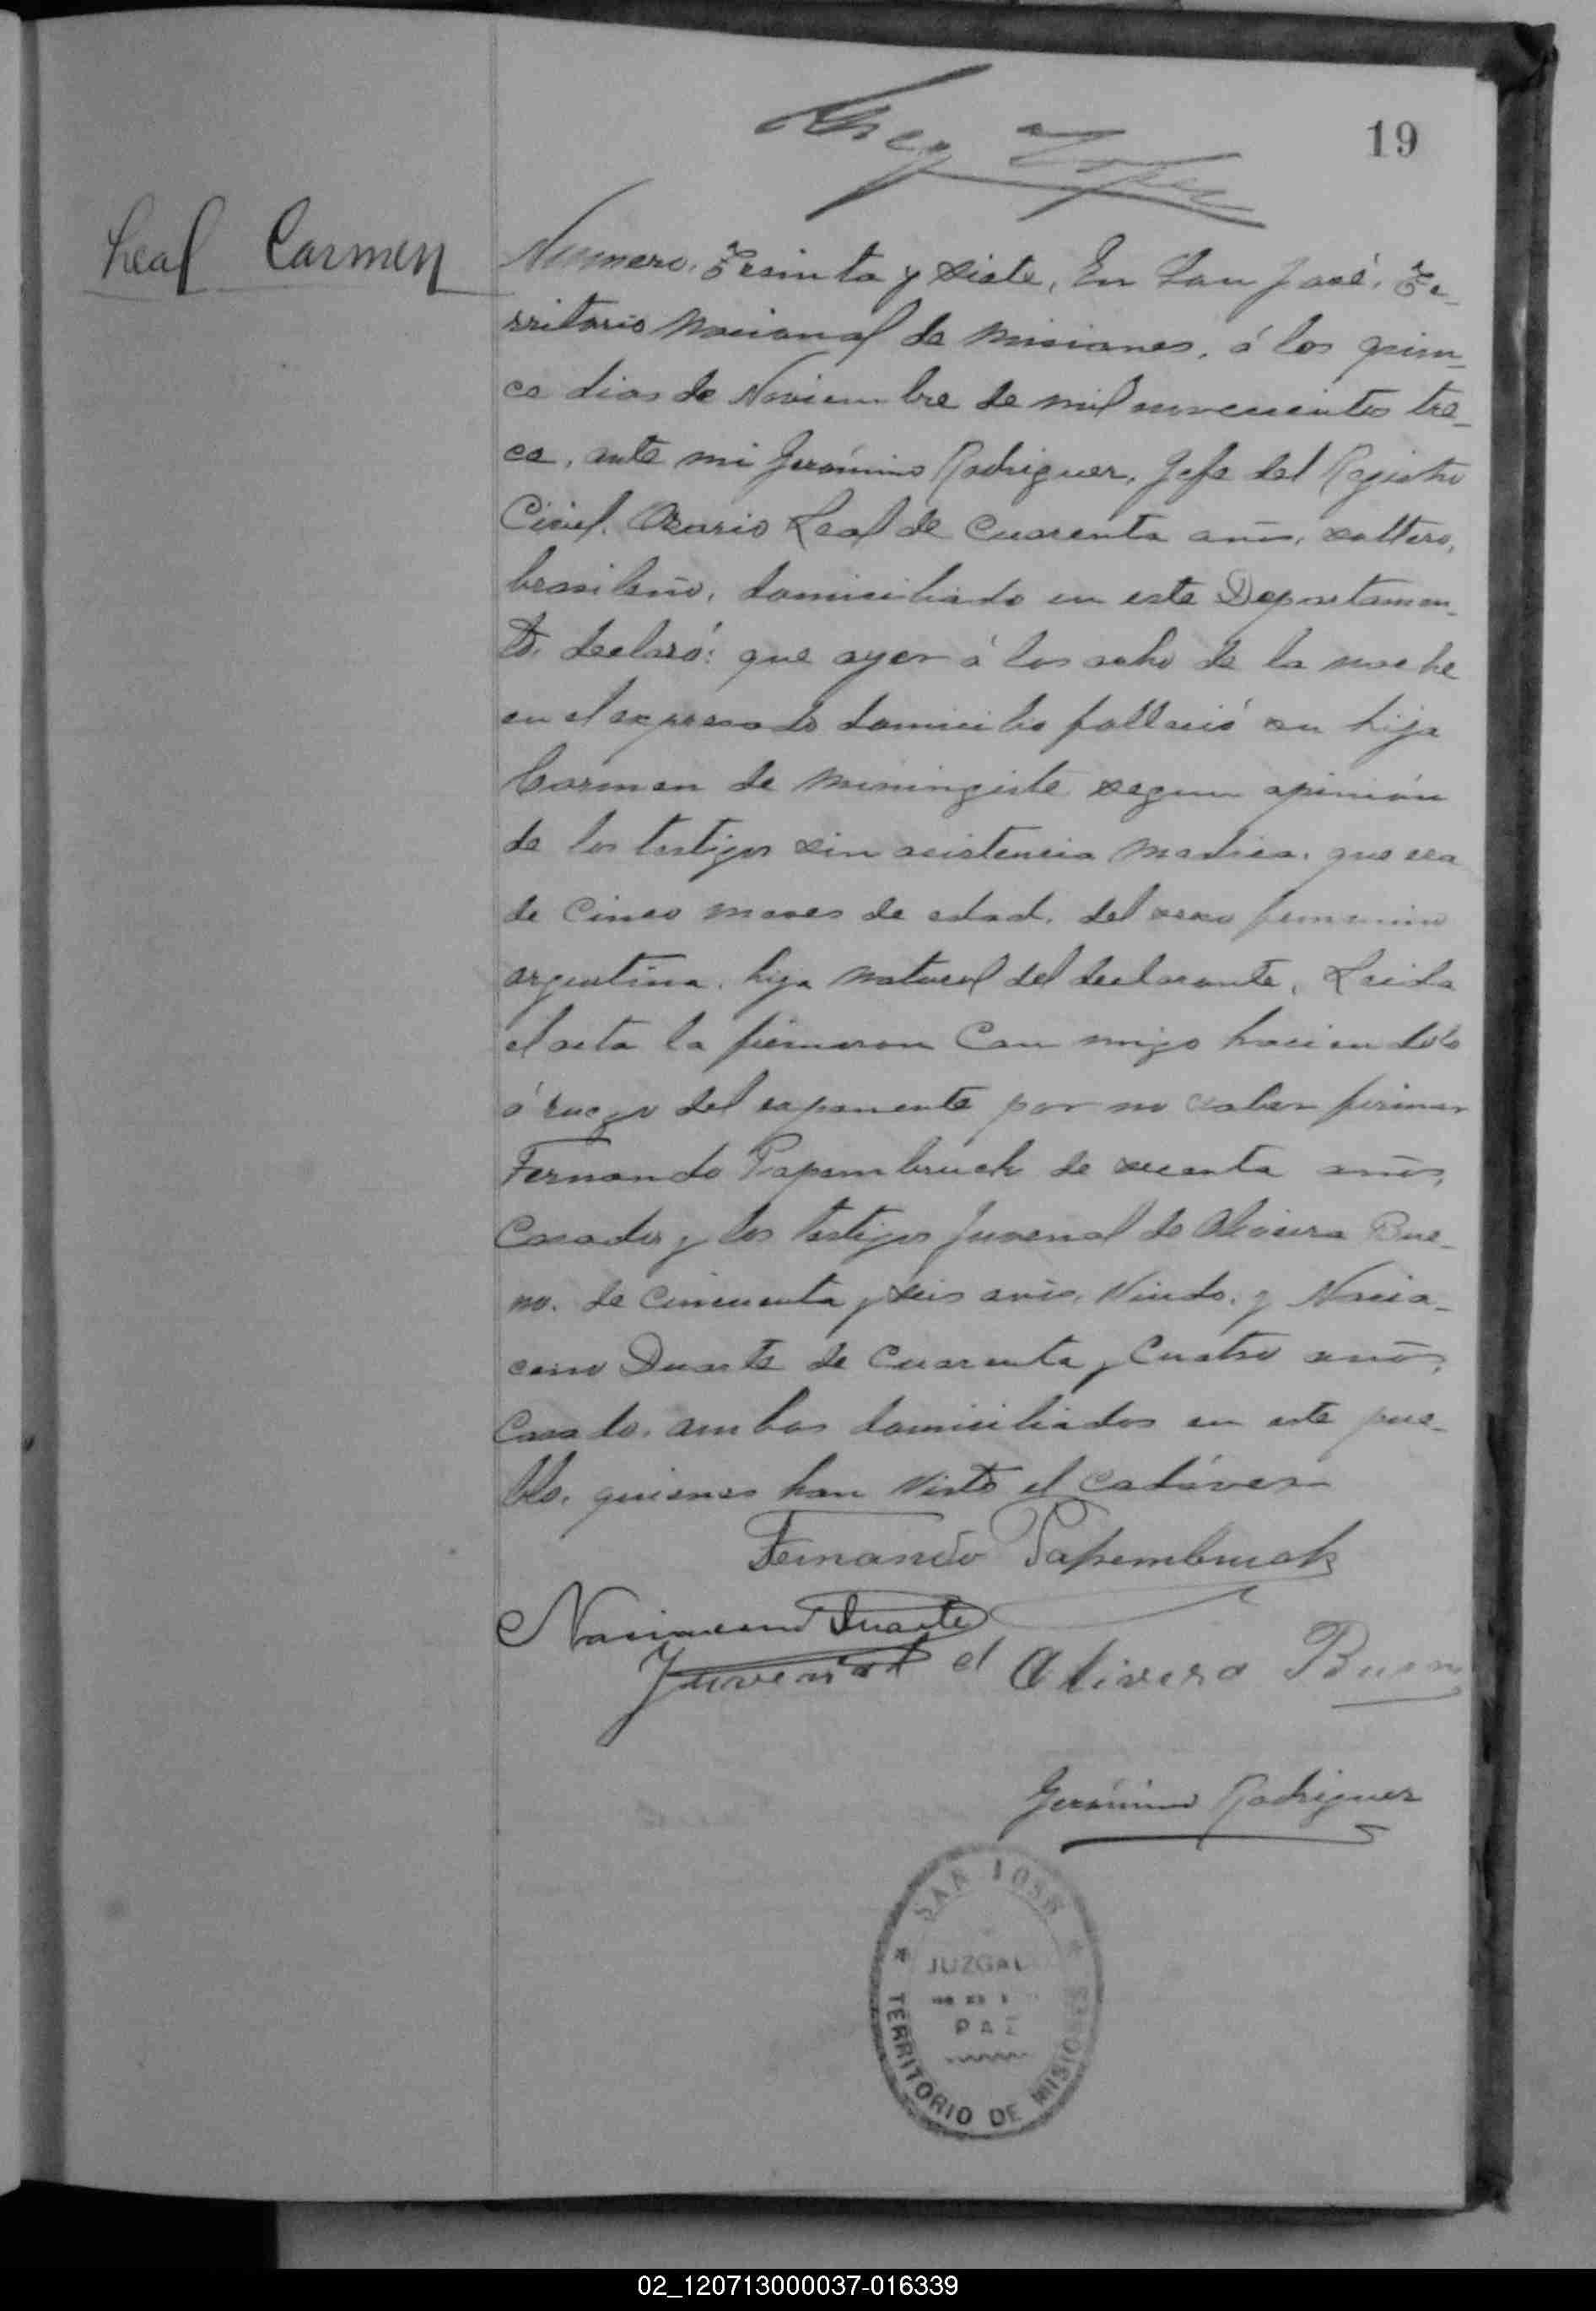 19
Leal Carmen
Numero, Treinta y siete, En San José, Te-
rritorio Nacional de Misiones, á los quin-
ce dias de Noviembre de mil novecientos tre-
ce, ante mi Jerónimo Rodriguez, Jefe del Registro
Civil, Leal de Cuarenta años, soltero,
brasileño, domiciliado en este Departamen-
to, declaró: que ayer á las ocho de la noche
en el expresado domicilio falleció su hija
Carmen de meningite segun opinión
de los testigos sin asistencia medica, que era
de Cinco meses de edad, del sexo femenino
argentina, hija natural del declarante, Leida
el acta la firmaron Con migo haciendolo
á ruego del exponente por no saber firmar
Fernando Papembruck de años,
Casado, y los testigos Juvenal de Oliveira Bue-
no, de Cincuenta y seis años, Viudo, y Nacia-
ceno Duarte de Cuarenta y Cuatro años,
Casado, ambos domiciliados en este pue-
blo, quienes han visto el Cadáver
Fernando Papembruck
Naciaceno Duarte
Juvenal d Olivera Bueno
Jerónimo Rodriguez
SAN JOSE
JUZGAD
PAZ
TERRITORIO DE MISIONES
02_120713000037-016339